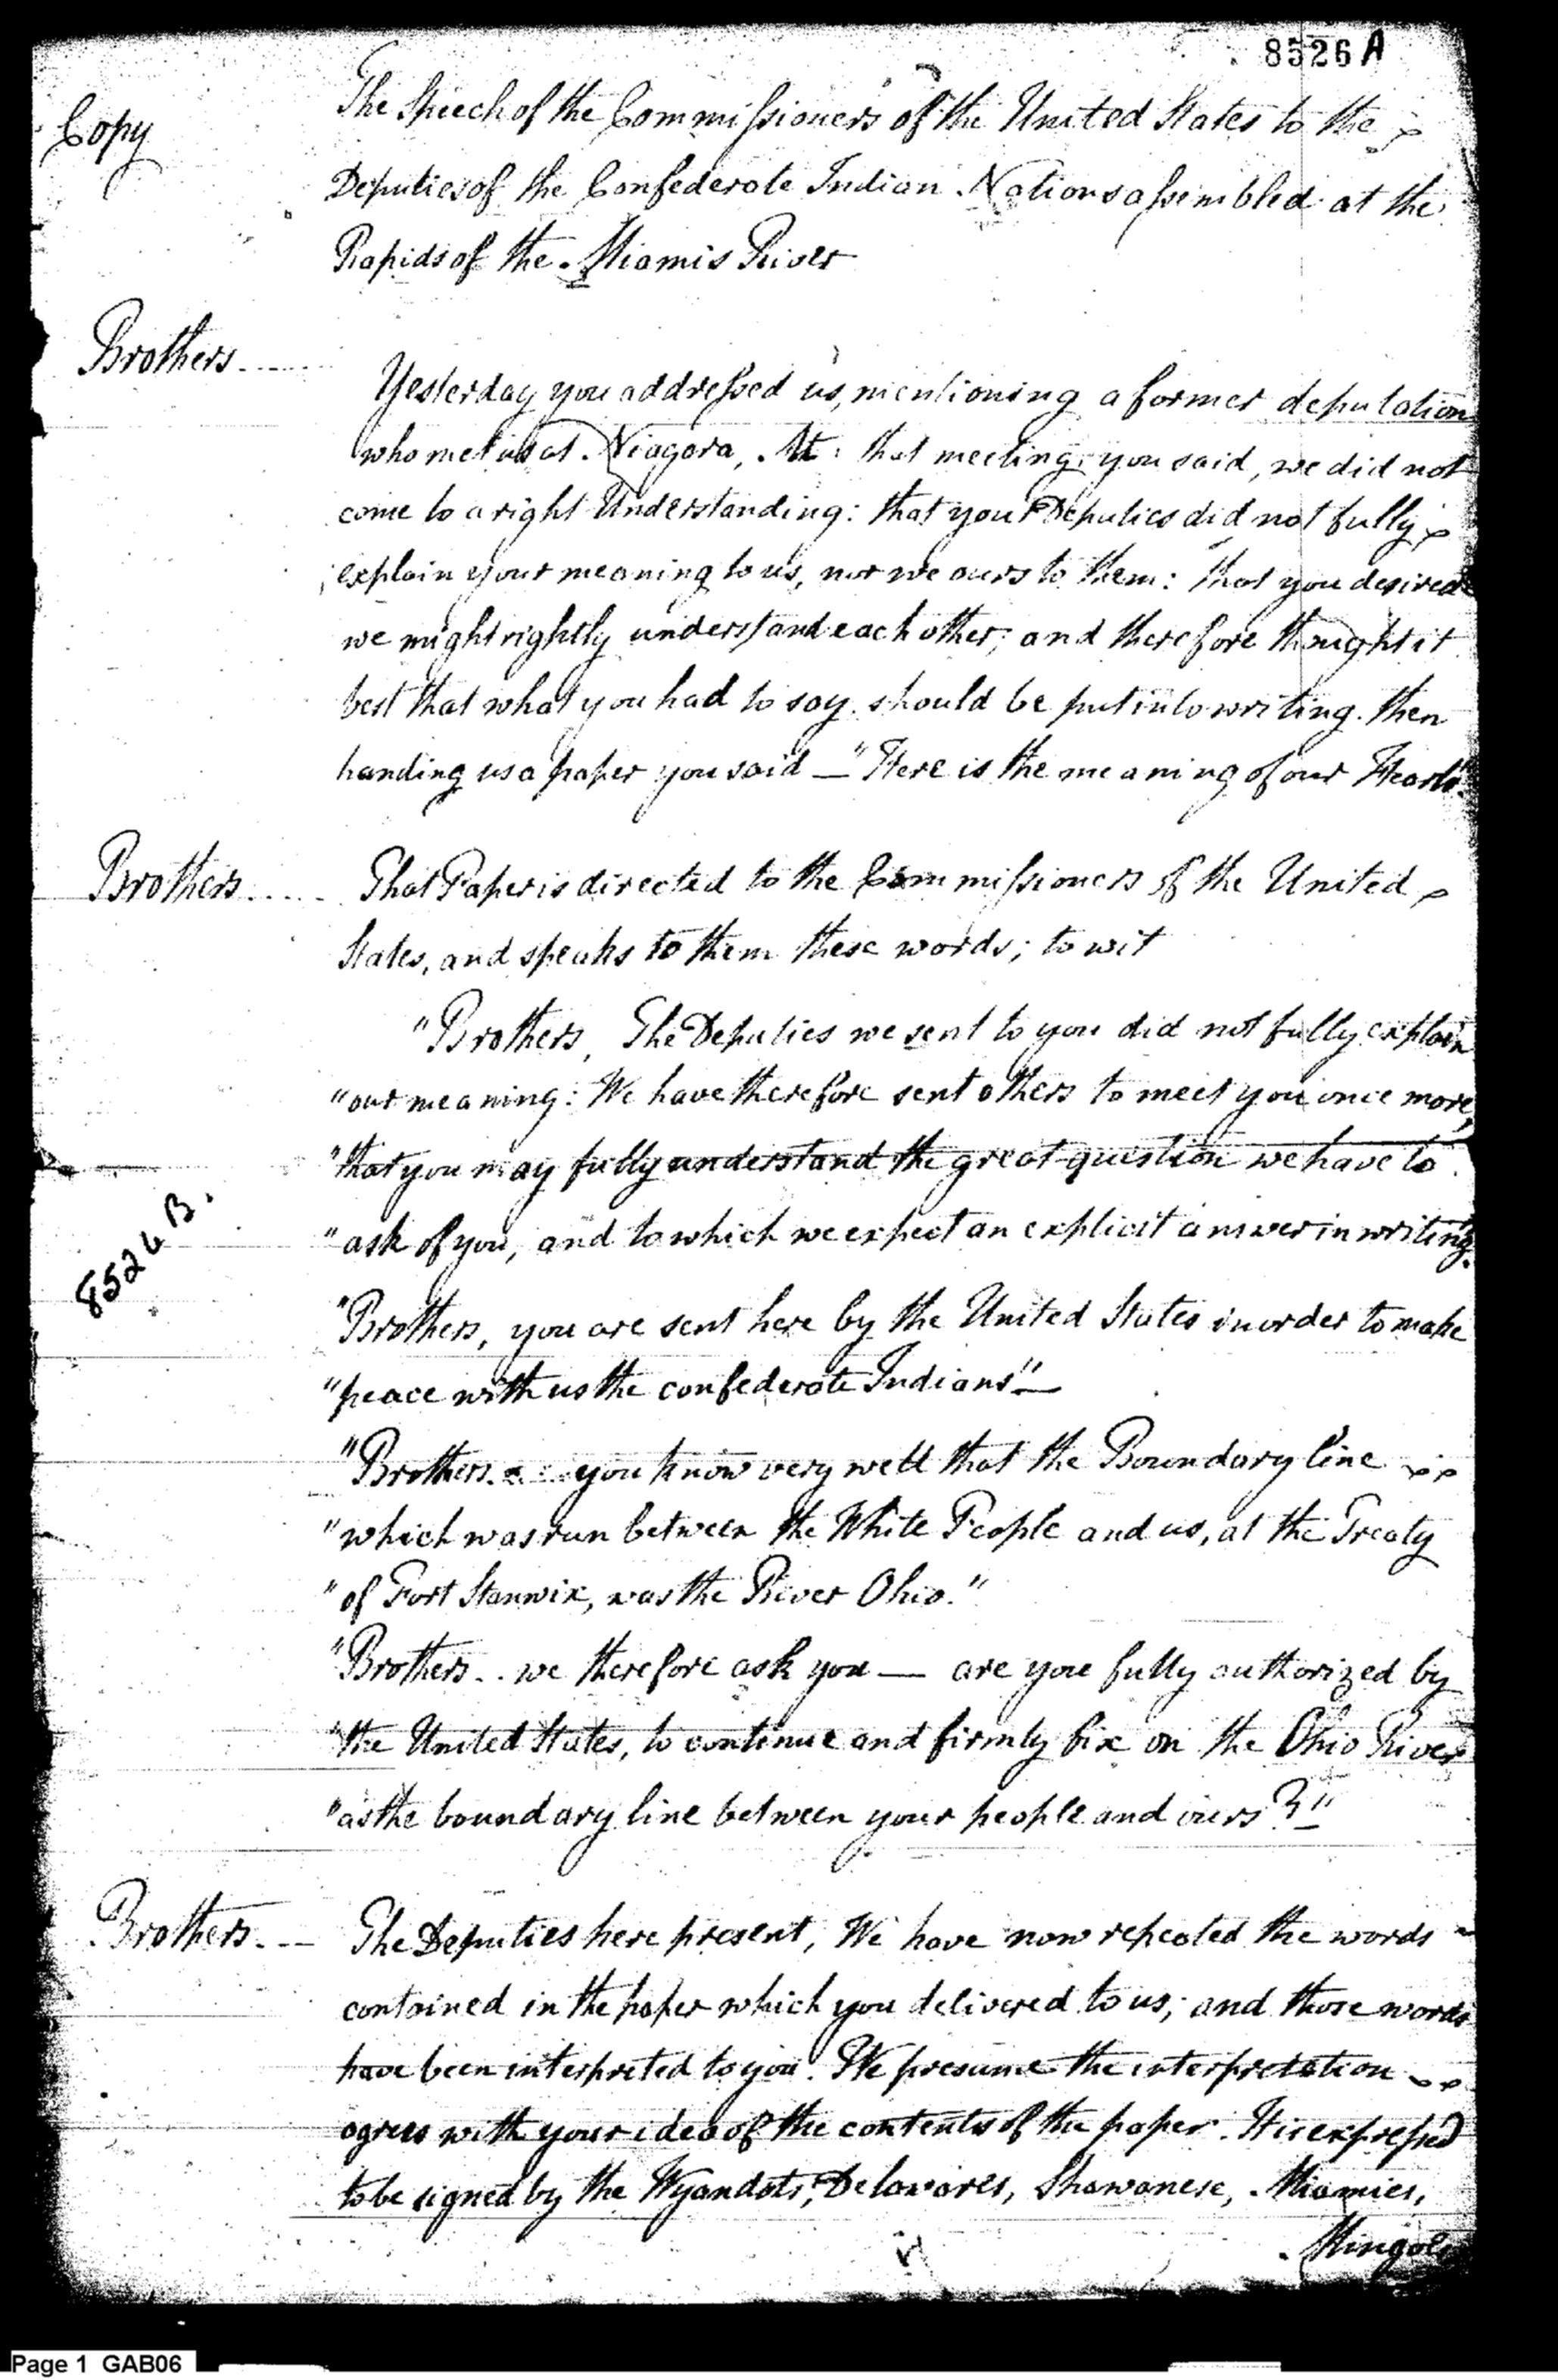 8526 A
Copy
The Speech of the Commissioners of the United States to the
Deputies of the Confederate Indian Nations assembled at the
Rapids of the Miamis River
Brothers
Yesterday you addressed us, mentioning a former deputation
who met us at Niagara, At that meeting you said, we did not
come to a right Understanding: that your Deputies did not fully
explain your meaning to us, nor we ours to them: that you desired
we might rightly understand each other; and therefore thought it
best that what you had to say should be put into writing. then
handing us a paper you said — "Here is the meaning of our Hearts".
Brothers
That Paper is directed to the Commissioners of the United
States, and speaks to them these words; to wit
"Brothers, The Deputies we sent to you did not fully explain
"our meaning: We have therefore sent others to meet you once more,
"that you may fully understand the great question we have to
"ask of you, and to which we expect an explicit answer in writing.
8526 B.
"Brothers, you are sent here by the United States in order to make
"peace with us the confederate Indians" —
"Brothers you know very well that the Boundary line
"which was run between the White People and us, at the Treaty
"of Fort Stanwix, was the River Ohio."
"Brothers .. we therefore ask you — are you fully authorized by
"the United States, to continue and firmly fix on the Ohio River
"as the boundary line between your people and ours?"
Brothers
The Deputies here present, We have now repeated the words
contained in the paper which you delivered to us; and those words
have been interpreted to you. We presume the interpretation
agrees with your idea of the contents of the paper. It is expressed
to be signed by the Wyandots, Delawares, Shawanese, Miamies,
Mingoes
Page 1 GAB06